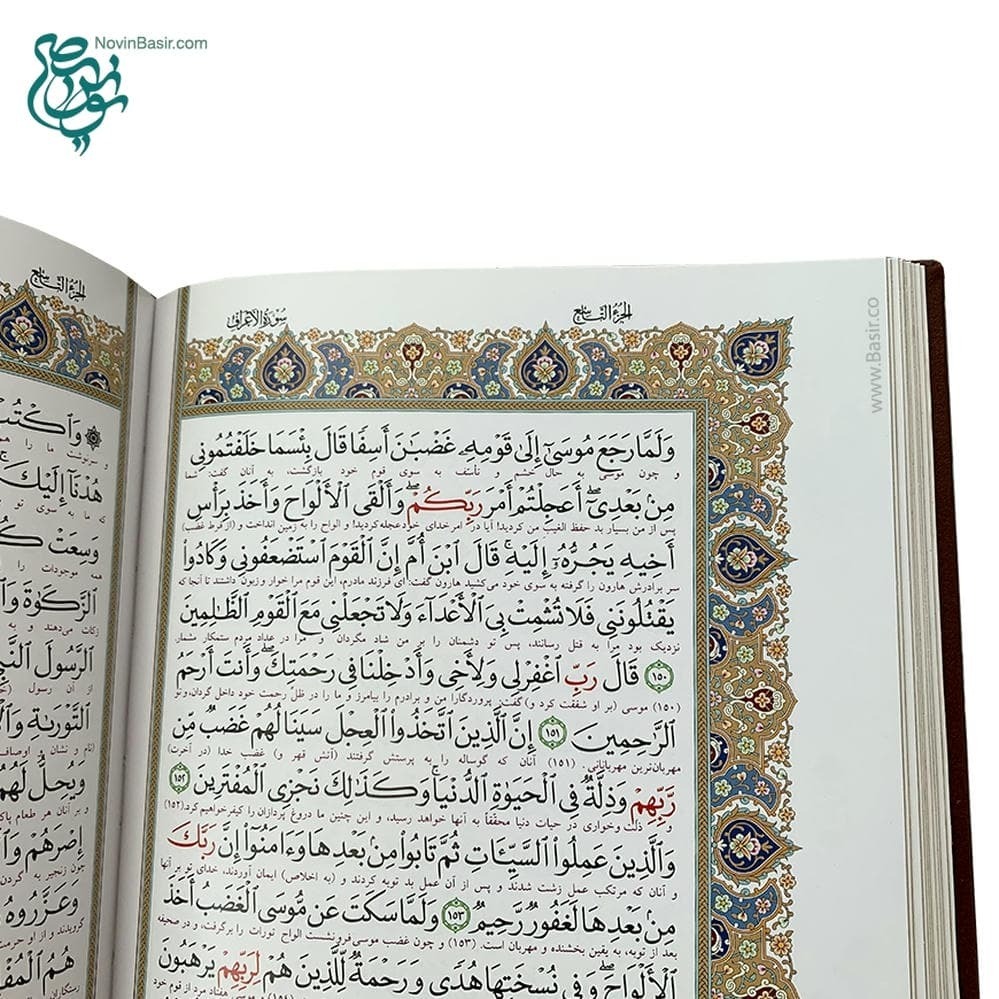 NovinBasir.com
www.Basir.co
الجزء التاسع
سورة الاعراف
وَلَمَّا رَجَعَ مُوسَىٰ إِلَىٰ قَوْمِهِ غَضْبَٰنَ أَسِفًا قَالَ بِئْسَمَا خَلَفْتُمُونِي
و چون موسی به حال خشم و تأسف به سوی قوم خود بازگشت، به آنان گفت: شما
مِنْ بَعْدِي أَعَجِلْتُمْ أَمْرَ رَبِّكُمْ وَأَلْقَى ٱلْأَلْوَاحَ وَأَخَذَ بِرَأْسِ
پس از من بسیار بد حفظ الغیب من کردید! آیا در امر خدای خود عجله کردید! و الواح را به زمین انداخت و (از فرط غضب)
أَخِيهِ يَجُرُّهُ إِلَيْهِ قَالَ ٱبْنَ أُمَّ إِنَّ ٱلْقَوْمَ ٱسْتَضْعَفُونِي وَكَادُوا
سر برادرش هارون را گرفته به سوی خود می‌کشید هارون گفت: ای فرزند مادرم، این قوم مرا خوار و زبون داشتند تا آنجا که
يَقْتُلُونَنِي فَلَا تُشْمِتْ بِيَ ٱلْأَعْدَاءَ وَلَا تَجْعَلْنِي مَعَ ٱلْقَوْمِ ٱلظَّٰلِمِينَ
نزدیک بود مرا به قتل رسانند، پس تو دشمنان را بر من شاد مگردان و مرا در عداد مردم ستمکار مشمار
۱۵۰ قَالَ رَبِّ ٱغْفِرْ لِي وَلِأَخِي وَأَدْخِلْنَا فِي رَحْمَتِكَ وَأَنْتَ أَرْحَمُ
(۱۵۰) موسی (بر او شفقت کرد و) گفت: پروردگارا من و برادرم را بیامرز و ما را در ظلّ رحمت خود داخل گردان، و تو
ٱلرَّٰحِمِينَ ۱۵۱ إِنَّ ٱلَّذِينَ ٱتَّخَذُوا ٱلْعِجْلَ سَيَنَالُهُمْ غَضَبٌ مِنْ
مهربان‌ترین مهربانانی. (۱۵۱) آنان که گوساله را به پرستش گرفتند (آتش قهر و) غضب خدا (در آخرت)
رَبِّهِمْ وَذِلَّةٌ فِي ٱلْحَيَوٰةِ ٱلدُّنْيَا وَكَذَٰلِكَ نَجْزِي ٱلْمُفْتَرِينَ ۱۵۲
و ذلت و خواری در حیات دنیا محققاً به آنها خواهد رسید، و این چنین ما دروغ پردازان را کیفر خواهیم کرد. (۱۵۲)
وَٱلَّذِينَ عَمِلُوا ٱلسَّيِّـَٔاتِ ثُمَّ تَابُوا مِنْ بَعْدِهَا وَءَامَنُوا إِنَّ رَبَّكَ
و آنان که مرتکب عمل زشت شدند و پس از آن عمل بد توبه کردند و (به اخلاص) ایمان آوردند، خدای تو بر آنها
مِنْ بَعْدِهَا لَغَفُورٌ رَحِيمٌ ۱۵۳ وَلَمَّا سَكَتَ عَنْ مُوسَى ٱلْغَضَبُ أَخَذَ
بعد از توبه، به یقین بخشنده و مهربان است. (۱۵۳) و چون غضب موسی فرو نشست الواح تورات را برگرفت، و در صحیفه
ٱلْأَلْوَاحَ وَفِي نُسْخَتِهَا هُدًى وَرَحْمَةٌ لِلَّذِينَ هُمْ لِرَبِّهِمْ يَرْهَبُونَ
الجزء التاسع
هُدْنَا إِلَيْكَ
که ما به سوی تو
وَسِعَتْ
همه موجودات را
ٱلزَّكَوٰةَ
زکات می‌دهند و به
ٱلرَّسُولَ
از آن رسول
ٱلتَّوْرَىٰةِ
وَيُحِلُّ لَهُمُ
و بر آنان هر طعام
إِصْرَهُمْ
چون زنجیر به گردن
وَعَزَّرُوهُ
گرویدند و از او
هُمُ
رستگاران